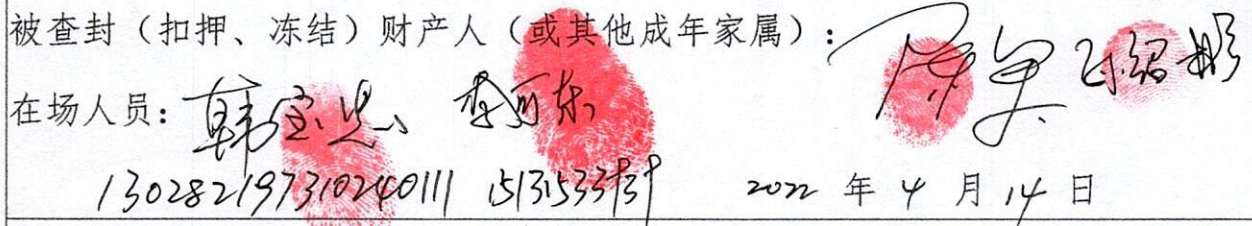 被查封（扣押、冻结）财产人（或其他成年家属）：
在场人员：韩宝忠、李可东
130282197310240111 2022 年 4 月 14 日